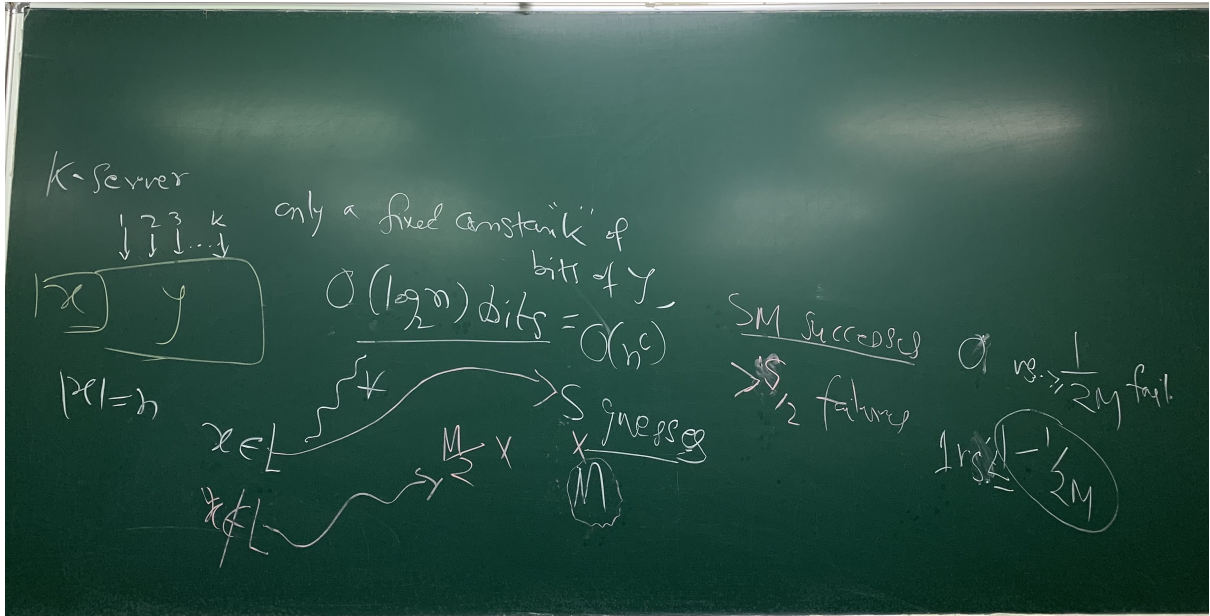 K-Server
1 2 3 .... K
only a fixed constant "k" of
bits of y
|x| y
O(log₂n) bits = O(n^c)
|x|=n
x∈L
S guesses
M/2 X X
M
x∉L
SM successes
>S/2 failures
1/2M fail
1 - 1/2M